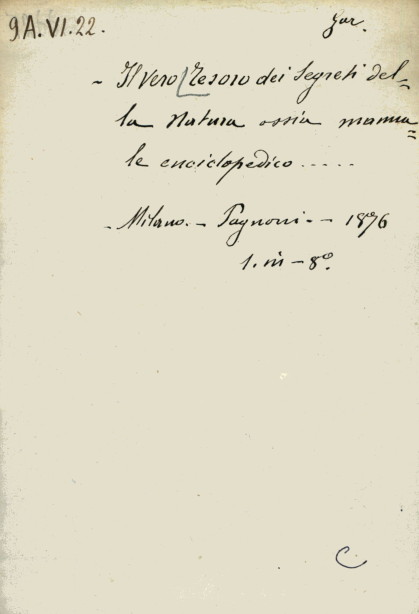 9A.VI.22.
- Il vero Tesoro dei Segreti del=
la Natura ossia manua=
le enciclopedico .....
- Milano. - Pagnoni. - 1876
1. in - 8°.
C